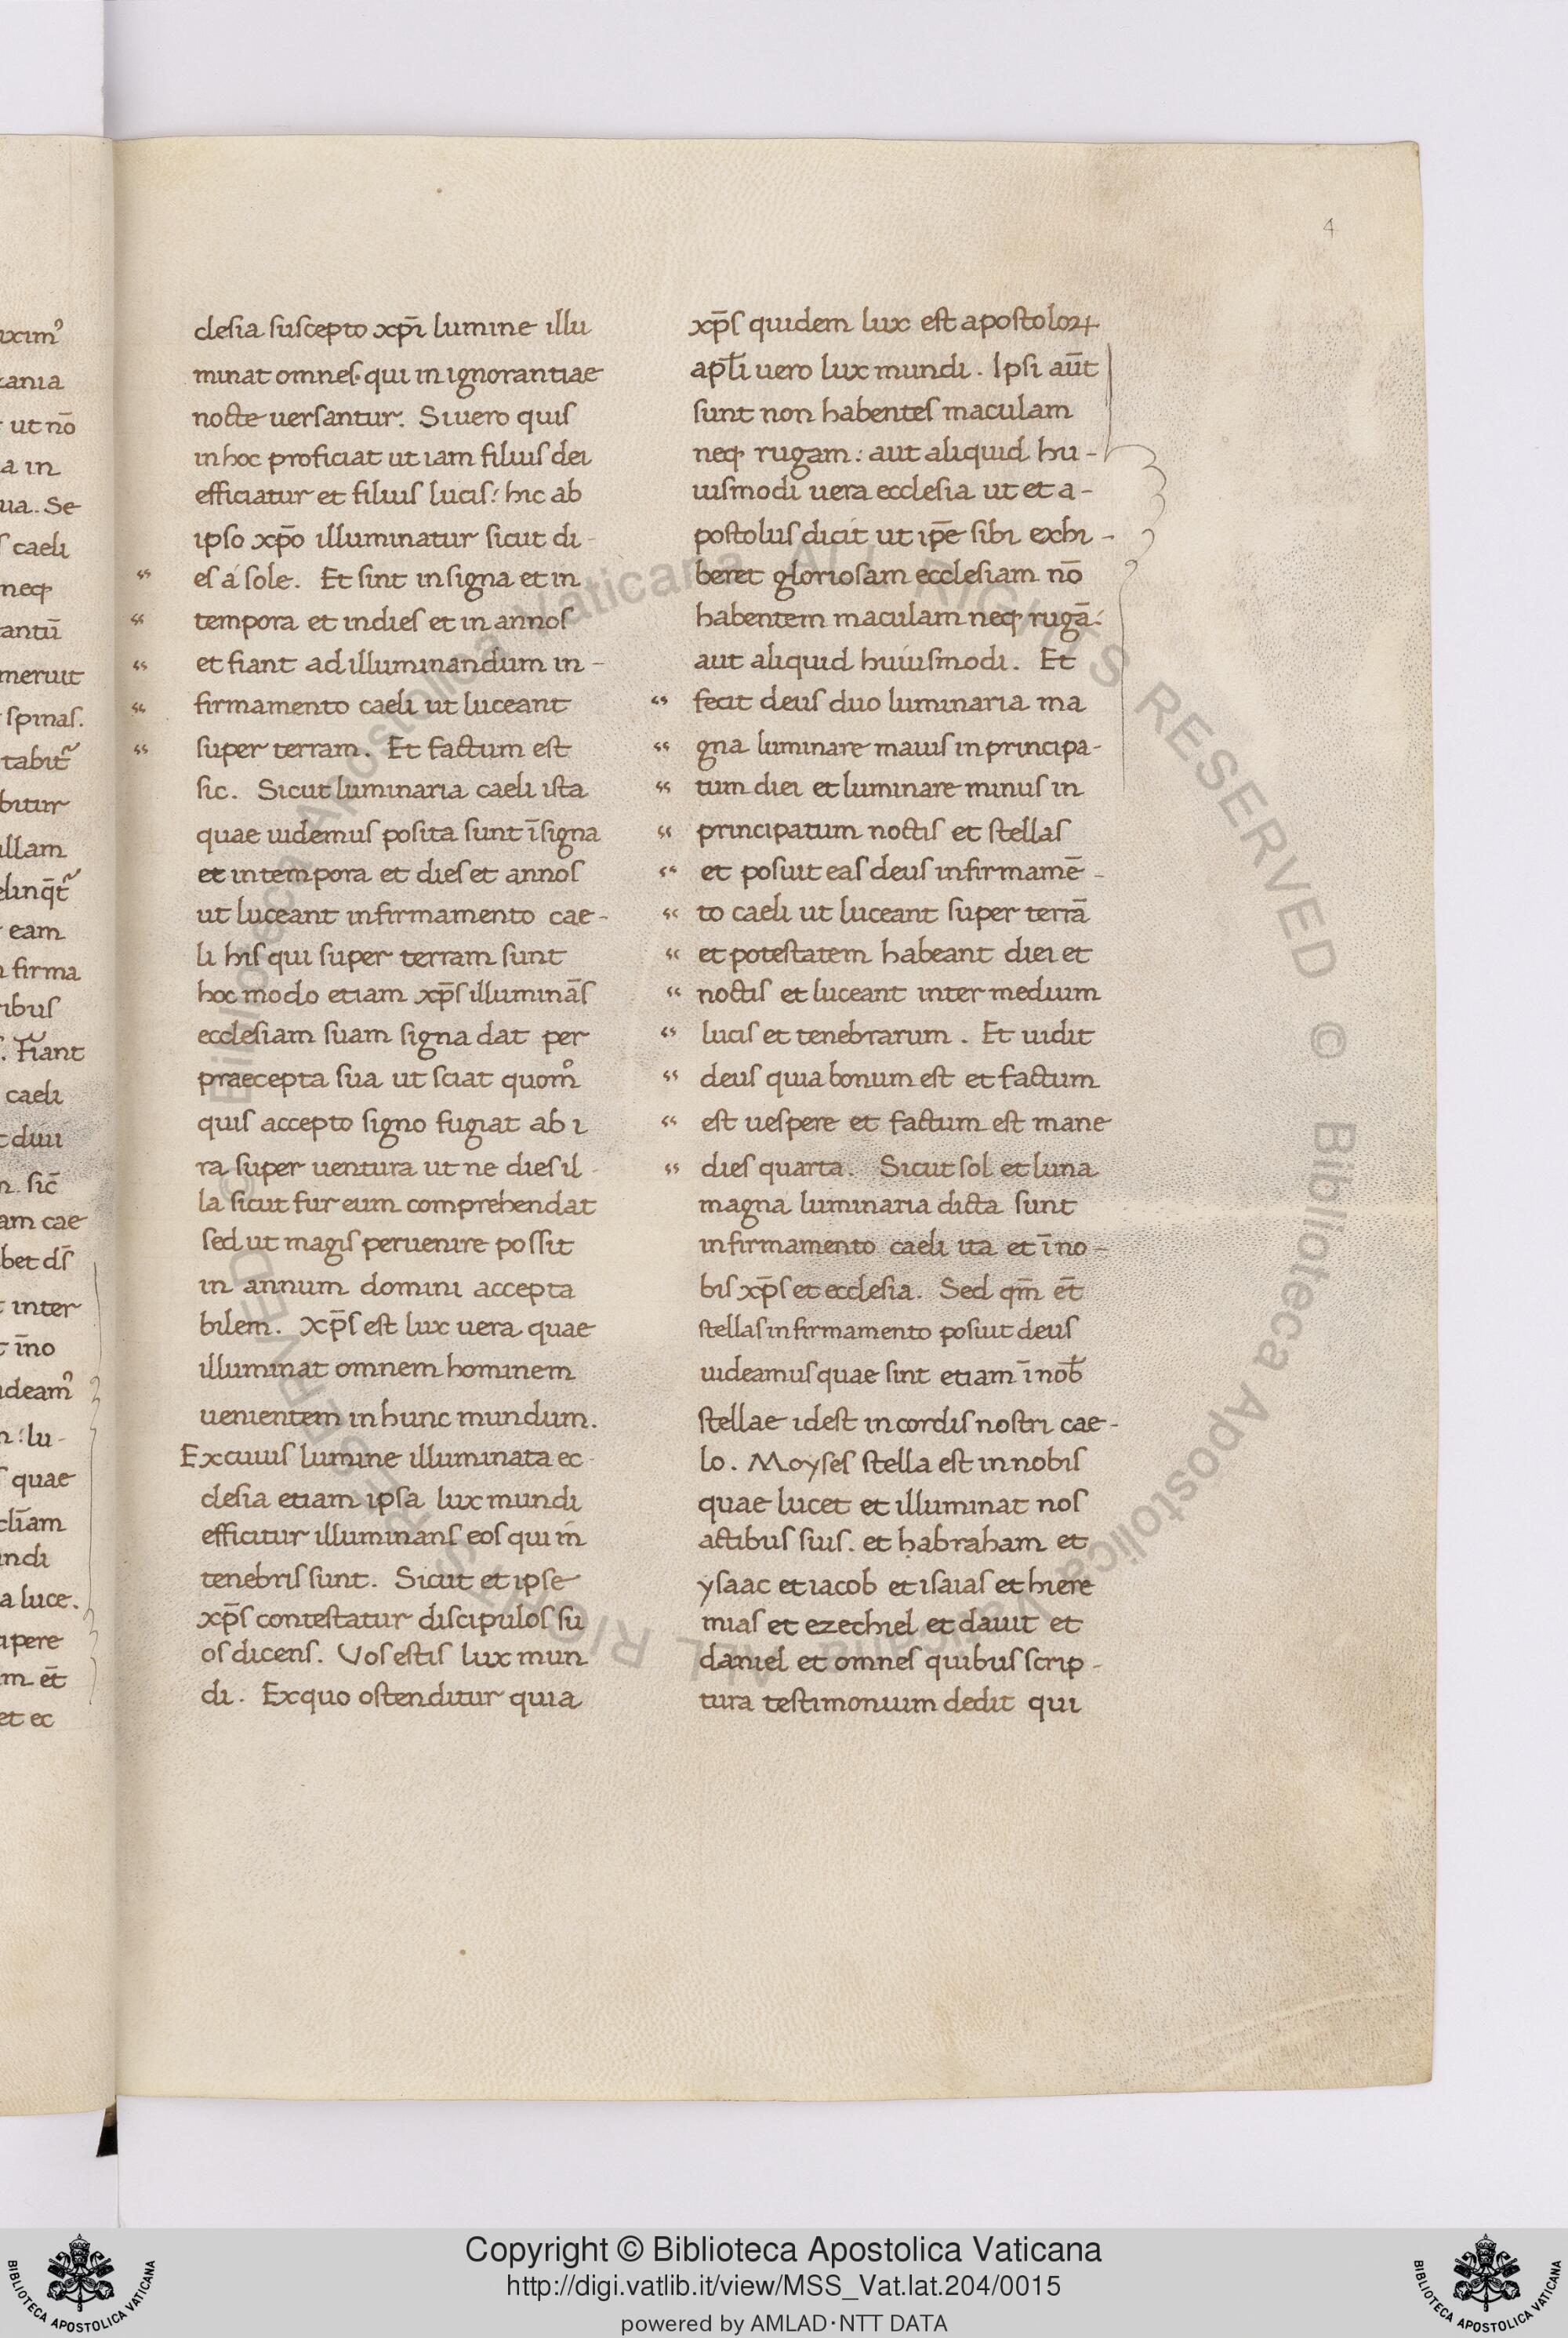 4
clesia suscepto xp̄i lumine illu
minat omnes· qui in ignorantiae
nocte uersantur. Si uero quis
in hoc proficiat ut iam filius dei
efficiatur et filius lucis: hic ab
ipso xp̄o illuminatur sicut di-
es á sole. Et sint in signa et in
tempora et in dies et in annos
et fiant ad illuminandum in-
firmamento caeli ut luceant
super terram. Et factum est
sic. Sicut luminaria caeli ista
quae uidemus posita sunt ī signa
et in tempora et dies et annos
ut luceant in firmamento cae-
li his qui super terram sunt
hoc modo etiam xp̄s illuminās
ecclesiam suam signa dat per
praecepta sua ut sciat quom̊
quis accepto signo fugiat ab i
ra super uentura ut ne dies il-
la sicut fur eum comprehendat
sed ut magis peruenire possit
in annum domini accepta
bilem. Xp̄s est lux uera quae
illuminat omnem hominem
uenientem in hunc mundum.
Ex cuius lumine illuminata ec-
clesia etiam ipsa lux mundi
efficitur illuminans eos qui in
tenebris sunt. Sicut et ipse
xp̄s contestatur discipulos su
os dicens. Vos estis lux mun
di. Ex quo ostenditur quia
xp̄s quidem lux est apostoloꝝ
apl̄i uero lux mundi. Ipsi aūt
sunt non habentes maculam
neqꝫ rugam: aut aliquid hu-
uismodi uera ecclesia ut et a-
postolus dicit ut ip̄e sibi exhi-
beret gloriosam ecclesiam nō
habentem maculam neqꝫ rugā:
aut aliquid huiusmodi. Et
fecit deus duo luminaria ma
gna luminare maius in principa-
tum diei et luminare minus in
principatum noctis et stellas
et posuit eas deus in firmamē-
to caeli ut luceant super terrā
et potestatem habeant diei et
noctis et luceant inter medium
lucis et tenebrarum. Et uidit
deus quia bonum est et factum
est uespere et factum est mane
dies quarta. Sicut sol et luna
magna luminaria dicta sunt
in firmamento caeli ita et ī no-
bis xp̄s et ecclesia. Sed qm̄ et̄
stellas in firmamento posuit deus
uideamus quae sint etiam ī nob̄
stellae id est in cordis nostri cae-
lo. Moyses stella est in nobis
quae lucet et illuminat nos
actibus suis. et ḥabraham et
ysaac et iacob et isaias et hiere
mias et ezechiel et dauit et
daniel et omnes quibus scrip-
tura testimonium dedit qui
Copyright © Biblioteca Apostolica Vaticana
http://digi.vatlib.it/view/MSS_Vat.lat.204/0015
powered by AMLAD·NTT DATA